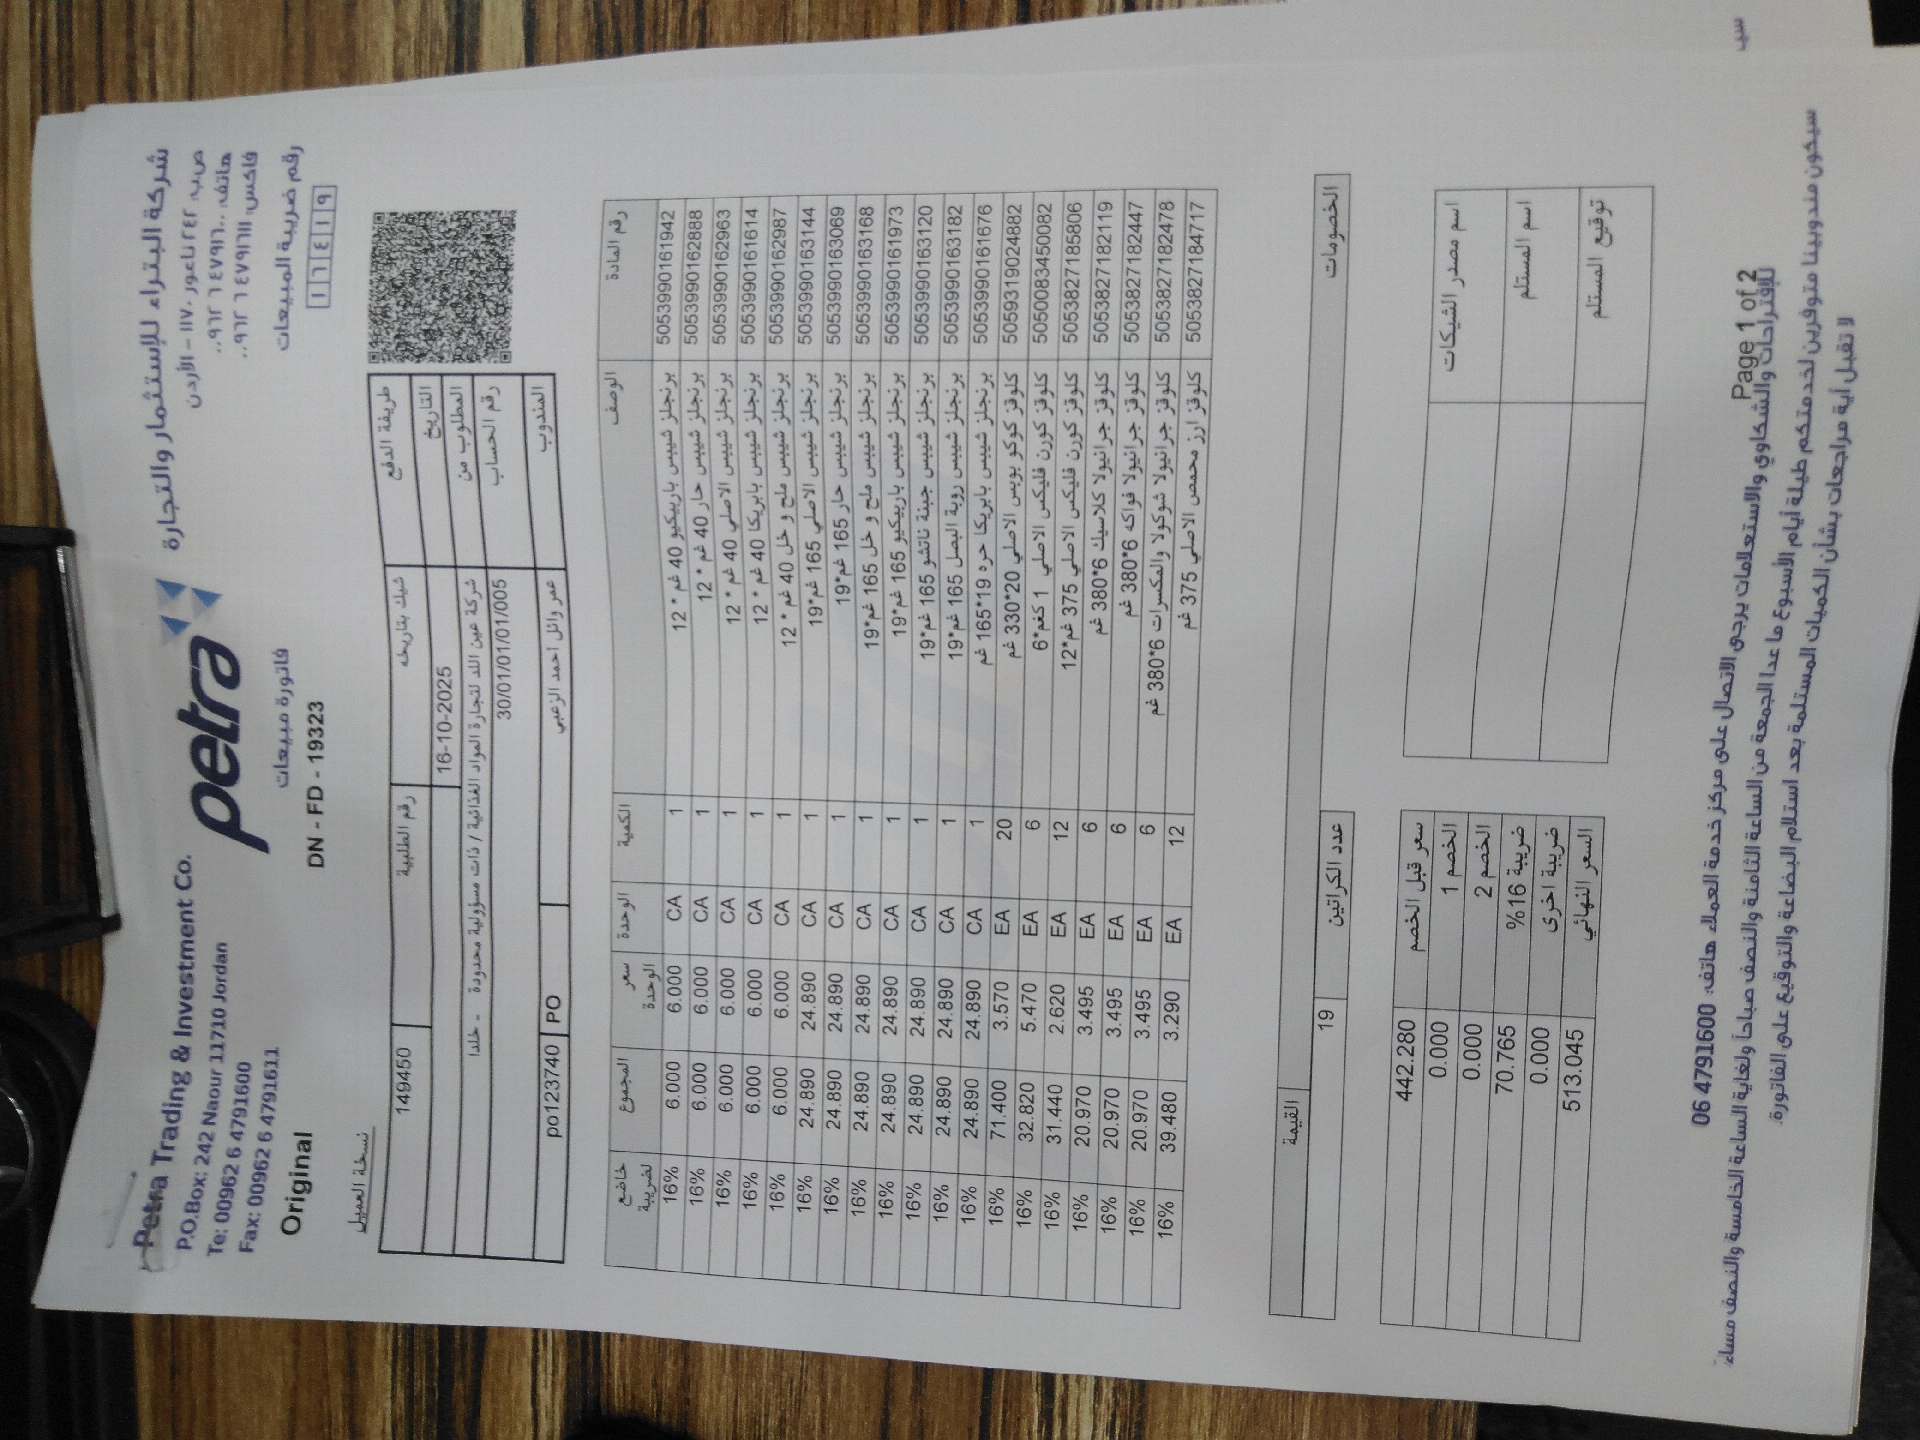 Petra Trading & Investment Co.
P.O.Box: 242 Naour 11710 Jordan
Te: 00962 6 4791600
Fax: 00962 6 4791611
Original
petra
فاتورة مبيعات
DN - FD - 19323
شركة البتراء للإستثمار والتجارة
ص.ب. ٢٤٢ ناعور ١١٧١٠ – الأردن
هاتف: ٤٧٩١٦٠٠ ٦ ٠٠٩٦٢
فاكس: ٤٧٩١٦١١ ٦ ٠٠٩٦٢
رقم ضريبة المبيعات
١١٦٤١٩
نسخة العميل
طريقة الدفع شيك بتاريخه رقم الطلبية 149450
التاريخ 16-10-2025
المطلوب من شركة عين اللد لتجارة المواد الغذائية / ذات مسؤولية محدودة - خلدا
رقم الحساب 30/01/01/01/005
المندوب عمر وائل احمد الزعبي PO po123740
رقم المادة الوصف الكمية الوحدة سعر الوحدة المجموع خاضع لضريبة
5053990161942 برنجلز شيبس باربيكيو 40 غم * 12 1 CA 6.000 6.000 16%
5053990162888 برنجلز شيبس حار 40 غم * 12 1 CA 6.000 6.000 16%
5053990162963 برنجلز شيبس الاصلي 40 غم * 12 1 CA 6.000 6.000 16%
5053990161614 برنجلز شيبس بابريكا 40 غم * 12 1 CA 6.000 6.000 16%
5053990162987 برنجلز شيبس ملح و خل 40 غم * 12 1 CA 6.000 6.000 16%
5053990163144 برنجلز شيبس الاصلي 165 غم*19 1 CA 24.890 24.890 16%
5053990163069 برنجلز شيبس حار 165 غم*19 1 CA 24.890 24.890 16%
5053990163168 برنجلز شيبس ملح و خل 165 غم*19 1 CA 24.890 24.890 16%
5053990161973 برنجلز شيبس باربيكيو 165 غم*19 1 CA 24.890 24.890 16%
5053990163120 برنجلز شيبس جبنة ناتشو 165 غم*19 1 CA 24.890 24.890 16%
5053990163182 برنجلز شيبس روبة البصل 165 غم*19 1 CA 24.890 24.890 16%
5053990161676 برنجلز شيبس بابريكا حره 19*165 غم 1 CA 24.890 24.890 16%
5059319024882 كلوقز كوكو بوبس الاصلي 20*330 غم 20 EA 3.570 71.400 16%
5050083450082 كلوقز كورن فليكس الاصلي 1 كغم*6 6 EA 5.470 32.820 16%
5053827185806 كلوقز كورن فليكس الاصلي 375 غم*12 12 EA 2.620 31.440 16%
5053827182119 كلوقز جرانيولا كلاسيك 6*380 غم 6 EA 3.495 20.970 16%
5053827182447 كلوقز جرانيولا فواكه 6*380 غم 6 EA 3.495 20.970 16%
5053827182478 كلوقز جرانيولا شوكولا والمكسرات 6*380 غم 6 EA 3.495 20.970 16%
5053827184717 كلوقز ارز محمص الاصلي 375 غم 12 EA 3.290 39.480 16%
الخصومات عدد الكراتين 19 القيمة
سعر قبل الخصم 442.280
الخصم 1 0.000
الخصم 2 0.000
ضريبة 16% 70.765
ضريبة اخرى 0.000
السعر النهائي 513.045
اسم مصدر الشيكات
اسم المستلم
توقيع المستلم
Page 1 of 2
للإقتراحات والشكاوي والاستعلامات يرجى الاتصال على مركز خدمة العملاء هاتف: 06 4791600
سيكون مندوبينا متوفرين لخدمتكم طيلة أيام الأسبوع ما عدا الجمعة من الساعة الثامنة والنصف صباحاً ولغاية الساعة الخامسة والنصف مساءً
لا تقبل أية مراجعات بشأن الكميات المستلمة بعد استلام البضاعة والتوقيع على الفاتورة.